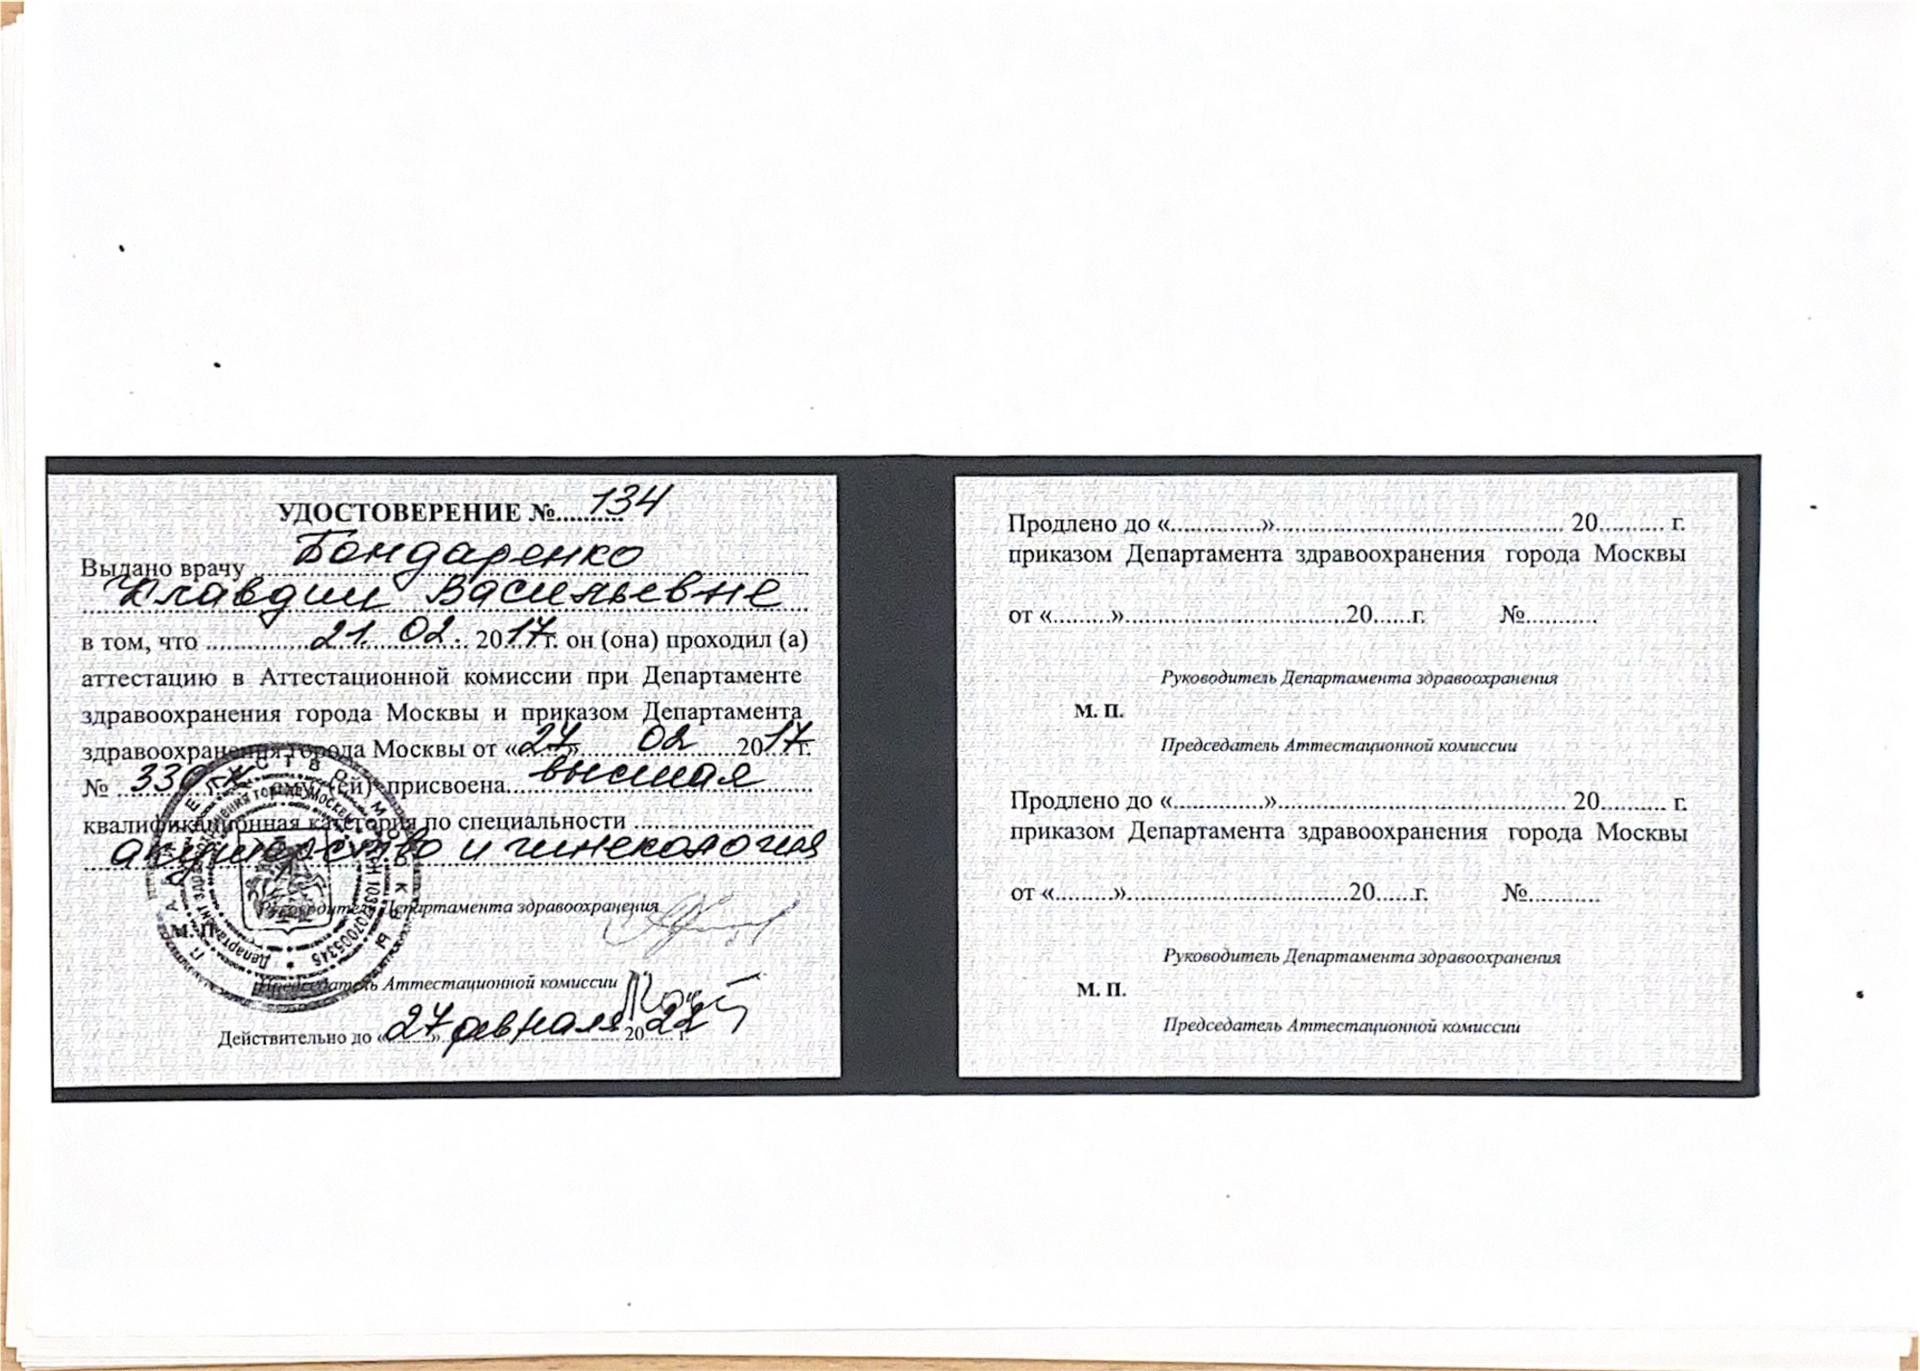 УДОСТОВЕРЕНИЕ №..........134
Выдано врачу Бондаренко
Клавдии Васильевне
в том, что 21. 02. 2017 г. он (она) проходил (а)
аттестацию в Аттестационной комиссии при Департаменте
здравоохранения города Москвы и приказом Департамента
здравоохранения города Москвы от «27» 02 2017 г.
№ ему (ей) присвоена высшая
квалификационная категория по специальности
акушерство и гинекология
Руководитель Департамента здравоохранения
М. П.
Председатель Аттестационной комиссии
Действительно до «27» февраля 2022 г.
Продлено до «..............»............................................ 20.......... г.
приказом Департамента здравоохранения города Москвы
от «.........»..................................20......г. №...........
Руководитель Департамента здравоохранения
М. П.
Председатель Аттестационной комиссии
Продлено до «..............»............................................ 20.......... г.
приказом Департамента здравоохранения города Москвы
от «.........»..................................20......г. №...........
Руководитель Департамента здравоохранения
М. П.
Председатель Аттестационной комиссии